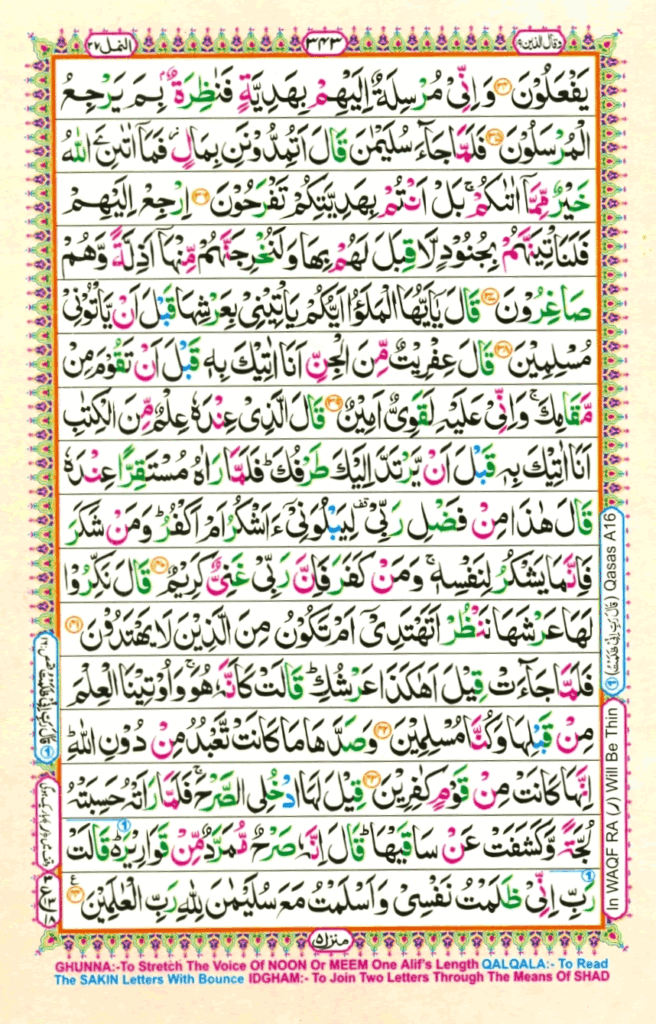 وقال الذین ۱۹
۳۴۳
النمل ۲۷
يَفْعَلُوْنَ ۝۳۴ وَاِنِّیْ مُرْسِلَةٌ اِلَیْهِمْ بِهَدِیَّةٍ فَنٰظِرَةٌۢ بِمَ یَرْجِعُ
الْمُرْسَلُوْنَ ۝۳۵ فَلَمَّا جَآءَ سُلَیْمٰنَ قَالَ اَتُمِدُّوْنَنِ بِمَالٍ ؗ فَمَاۤ اٰتٰىنِۦَ اللّٰهُ
خَیْرٌ مِّمَّاۤ اٰتٰىكُمْ ۚ بَلْ اَنْتُمْ بِهَدِیَّتِكُمْ تَفْرَحُوْنَ ۝۳۶ اِرْجِعْ اِلَیْهِمْ
فَلَنَاْتِیَنَّهُمْ بِجُنُوْدٍ لَّا قِبَلَ لَهُمْ بِهَا وَلَنُخْرِجَنَّهُمْ مِّنْهَاۤ اَذِلَّةً وَّهُمْ
صَاغِرُوْنَ ۝۳۷ قَالَ یٰۤاَیُّهَا الْمَلَؤُا اَیُّكُمْ یَاْتِیْنِیْ بِعَرْشِهَا قَبْلَ اَنْ یَّاْتُوْنِیْ
مُسْلِمِیْنَ ۝۳۸ قَالَ عِفْرِیْتٌ مِّنَ الْجِنِّ اَنَا اٰتِیْكَ بِهٖ قَبْلَ اَنْ تَقُوْمَ مِنْ
مَّقَامِكَ ۚ وَاِنِّیْ عَلَیْهِ لَقَوِیٌّ اَمِیْنٌ ۝۳۹ قَالَ الَّذِیْ عِنْدَهٗ عِلْمٌ مِّنَ الْكِتٰبِ
اَنَا اٰتِیْكَ بِهٖ قَبْلَ اَنْ یَّرْتَدَّ اِلَیْكَ طَرْفُكَ ؕ فَلَمَّا رَاٰهُ مُسْتَقِرًّا عِنْدَهٗ
قَالَ هٰذَا مِنْ فَضْلِ رَبِّیْ ۖۗ لِیَبْلُوَنِیْۤ ءَاَشْكُرُ اَمْ اَكْفُرُ ؕ وَمَنْ شَكَرَ
فَاِنَّمَا یَشْكُرُ لِنَفْسِهٖ ۚ وَمَنْ كَفَرَ فَاِنَّ رَبِّیْ غَنِیٌّ كَرِیْمٌ ۝۴۰ قَالَ نَكِّرُوْا
لَهَا عَرْشَهَا نَنْظُرْ اَتَهْتَدِیْۤ اَمْ تَكُوْنُ مِنَ الَّذِیْنَ لَا یَهْتَدُوْنَ ۝۴۱
فَلَمَّا جَآءَتْ قِیْلَ اَهٰكَذَا عَرْشُكِ ؕ قَالَتْ كَاَنَّهٗ هُوَ ۚ وَاُوْتِیْنَا الْعِلْمَ
مِنْ قَبْلِهَا وَكُنَّا مُسْلِمِیْنَ ۝۴۲ وَصَدَّهَا مَا كَانَتْ تَّعْبُدُ مِنْ دُوْنِ اللّٰهِ ؕ
اِنَّهَا كَانَتْ مِنْ قَوْمٍ كٰفِرِیْنَ ۝۴۳ قِیْلَ لَهَا ادْخُلِی الصَّرْحَ ۚ فَلَمَّا رَاَتْهُ حَسِبَتْهُ
لُجَّةً وَّكَشَفَتْ عَنْ سَاقَیْهَا ؕ قَالَ اِنَّهٗ صَرْحٌ مُّمَرَّدٌ مِّنْ قَوَارِیْرَ ؕ۬ قَالَتْ
رَبِّ اِنِّیْ ظَلَمْتُ نَفْسِیْ وَاَسْلَمْتُ مَعَ سُلَیْمٰنَ لِلّٰهِ رَبِّ الْعٰلَمِیْنَ ۝۴۴
منزل ۵
Qasas A16
In WAQF RA (ر) Will Be Thin
GHUNNA:-To Stretch The Voice Of NOON Or MEEM One Alif's Length QALQALA:- To Read
The SAKIN Letters With Bounce IDGHAM:- To Join Two Letters Through The Means Of SHAD